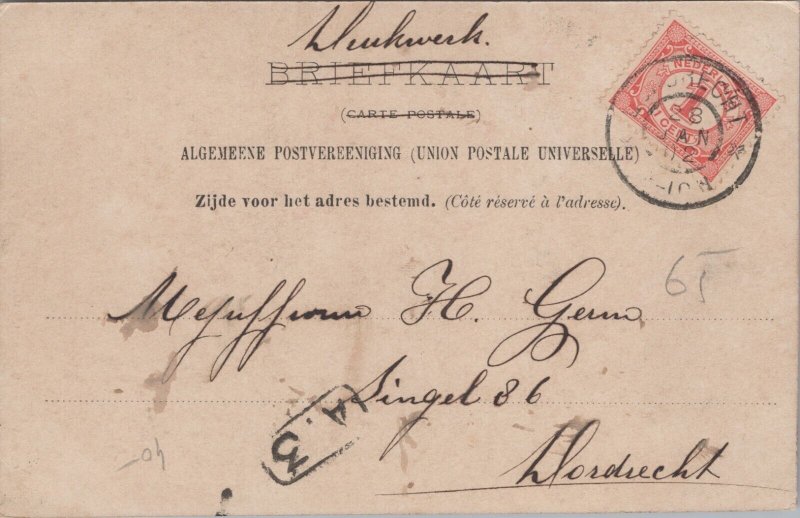 Drukwerk.
BRIEFKAART
(CARTE POSTALE)
ALGEMEENE POSTVEREENIGING (UNION POSTALE UNIVERSELLE)
Zijde voor het adres bestemd. (Côté réservé à l'adresse).
NEDER
1
CENT
DRECHT
28
JAN
65
Mejuffrouw H. Germ
Singel 86
Dordrecht
A. 3
40-